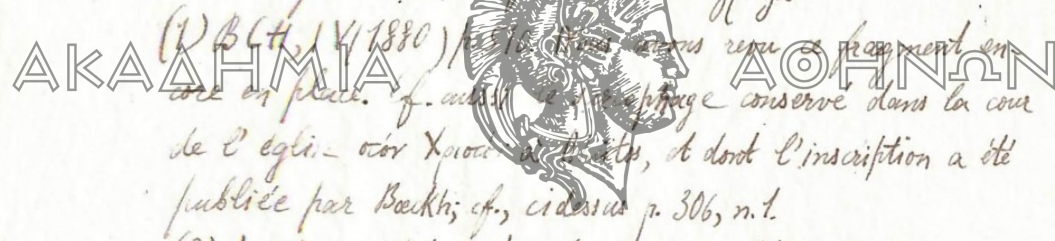 (1) BCH, IV (1880) p. Nous avons revu ce fragment en
ΑΚΑΔΗΜΙΑ ΑΘΗΝΩΝ
core en place. cf. aussi le sarcophage conservé dans la cour
de l'église στόν Χριστό à, et dont l'inscription a été
publiée par Bœckh; cf., cidessus p. 306, n.1.